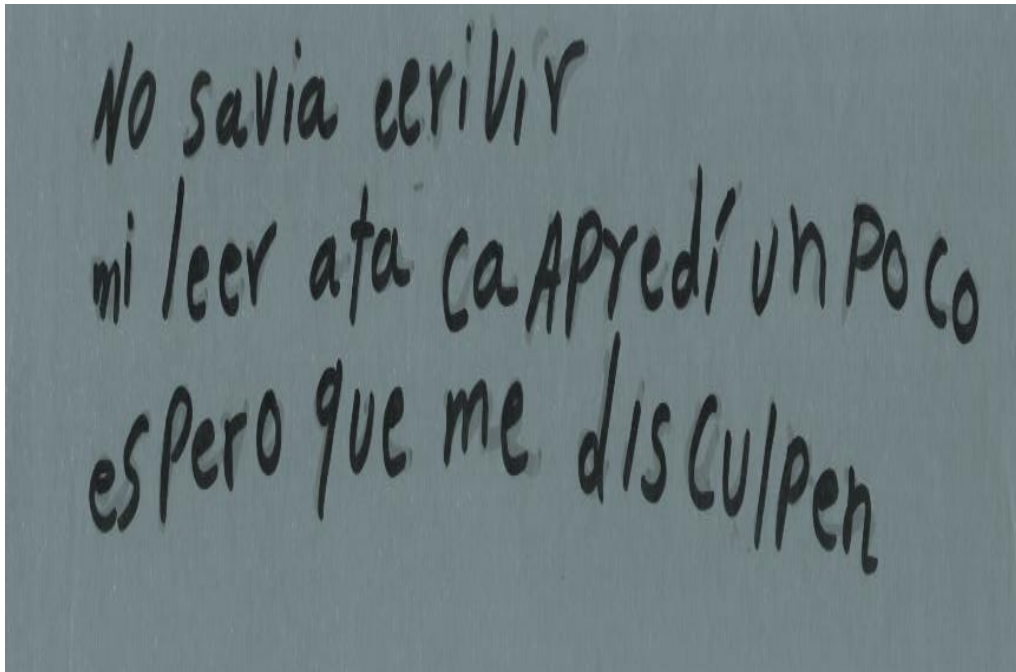 No savia ecrivir
mi leer ata ca Apredí un poco
espero que me disculpen